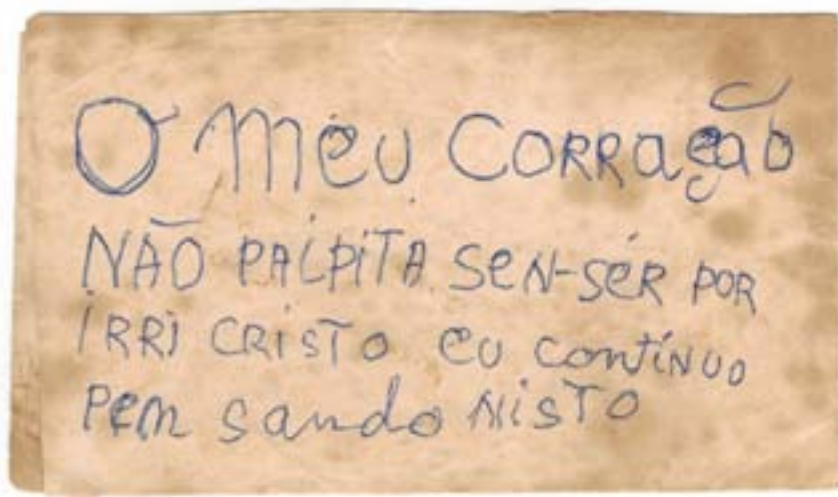 O Meu CORRação
NÃO PALPITA SEN-SÉR POR
IRRI CRISTO eu contínuo
Pem sando NISTO